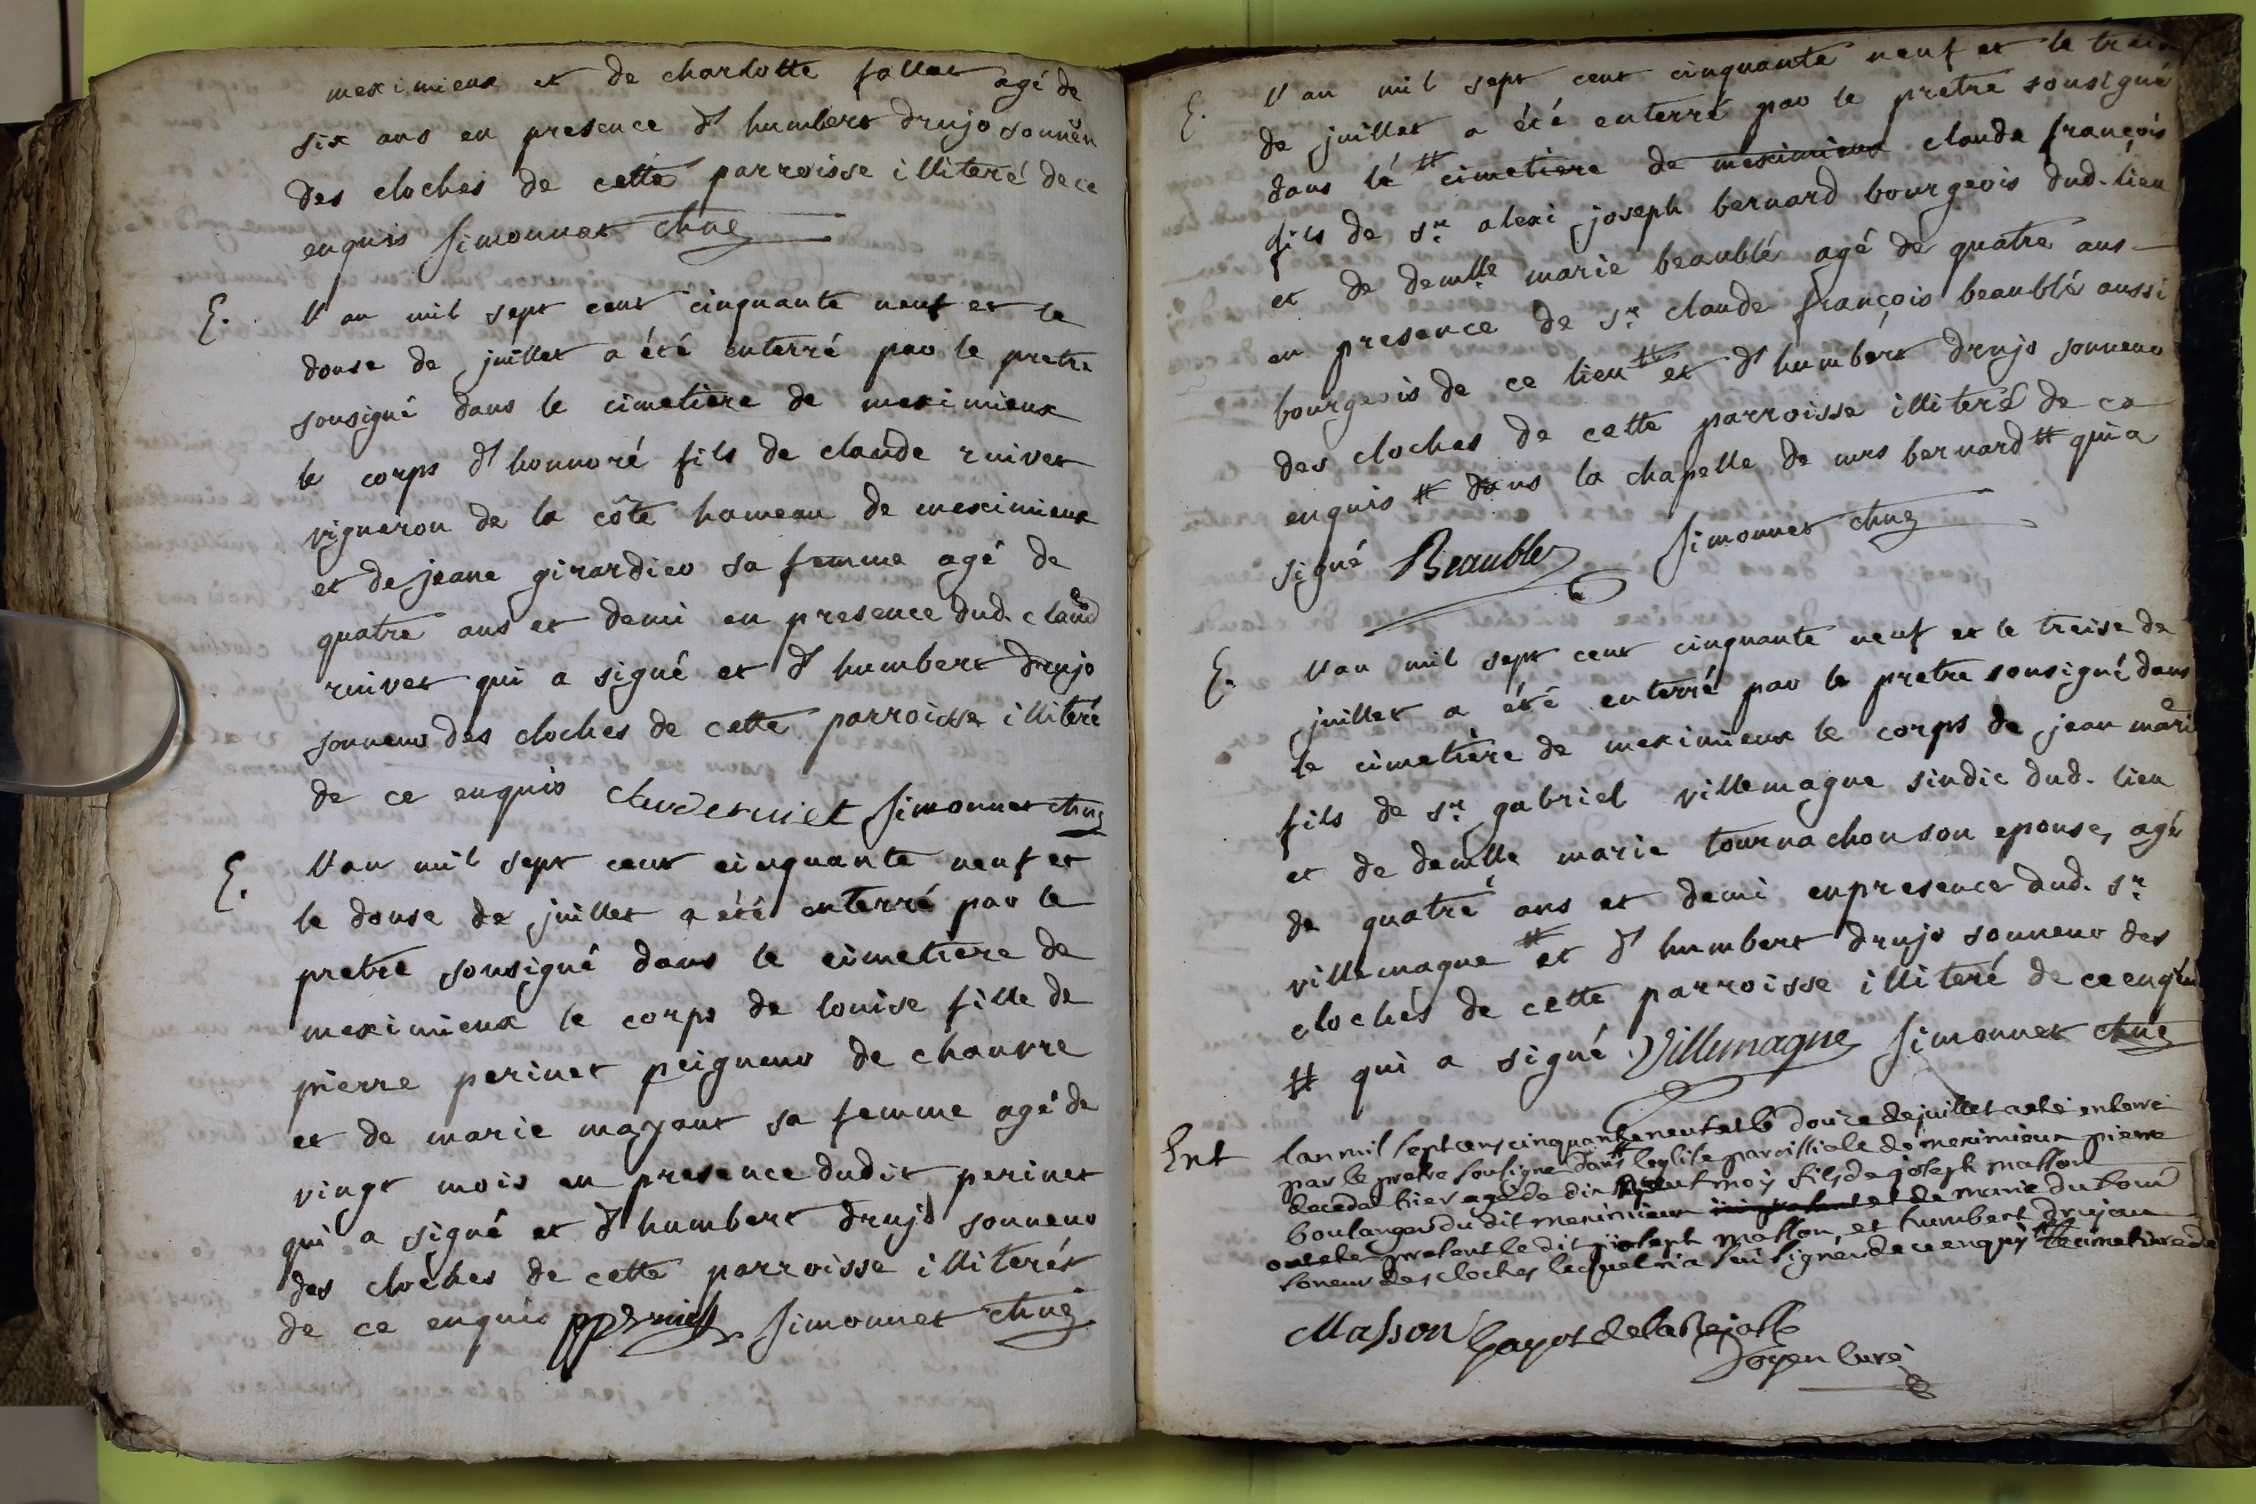 meximieux et de charlotte fallet agé de
six ans en presence d'humbert drujo sonneu
des cloches de cette parroisse illiteré de ce
enquis Simonnet
E. l'an mil sept cent cinquante neuf et le
douse de juillet a été enterré par le pretre
sousigné dans le cimetiere de meximieux
le corps d'honnoré fils de claude ruivet
vigneron de la côte hameau de meximieux
et de jeane girardier sa femme agé de
quatre ans et demi en presence dud. claude
ruivet qui a signé et d'humbert drujo
sonneur des cloches de cette parroisse illiteré
de ce enquis Simonnet
E. l'an mil sept cent cinquante neuf et
le douse de juillet a été enterré par le
pretre sousigné dans le cimetiere de
meximieux le corps de louise fille de
pierre perinet peigneur de chanvre
et de marie mayant sa femme agé de
vingt mois en presence dudit perinet
qui a signé et d'humbert drujo sonneur
des cloches de cette parroisse illiterés
de ce enquis Simonnet
E. l'an mil sept cent cinquante neuf et le treise
de juillet a été enterré par le prêtre sousigné
dans le # cimetiere de meximieux claude françois
fils de sr. alexi joseph bernard bourgeois dud. lieu
et de demlle marie beaublé agé de quatre ans
en presence de sr. claude françois beaublé aussi
bourgeois de ce lieu # et d'humbert drujo sonneur
des cloches de cette parroisse illiteré de ce
enquis # dans la chapelle de mrs bernard # qui a
signé Beaublez Simonnet
E. l'an mil sept cent cinquante neuf et le treise de
juillet a été enterré par le pretre sousigné dans
le cimetière de meximieux le corps de jean marie
fils de sr. gabriel villemagne sindic dud. lieu
et de demlle marie tournachon son epouse, agé
de quatre ans et demi en presence dud. sr.
villemagne # et d'humbert drujo sonneur des
cloches de cette parroisse illiteré de ce enquis
# qui a signé Villemagne Simonnet
Ent l'an mil sept cens cinquante neuf et le douze de juillet a eté enterré
par le pretre sousigné dans l'eglise paroissiale de meximieux pierre
decedat hier agé de dix huit moy fils de joseph masson
boulanger du dit meximieux et de marie du four
ont eté present le dit joseph masson et humbert drujau
soneur des cloches lequel n'a seu signer de ce enquis # le cimetiere de
Masson Gayot de la Rejasse
Doyen Curé